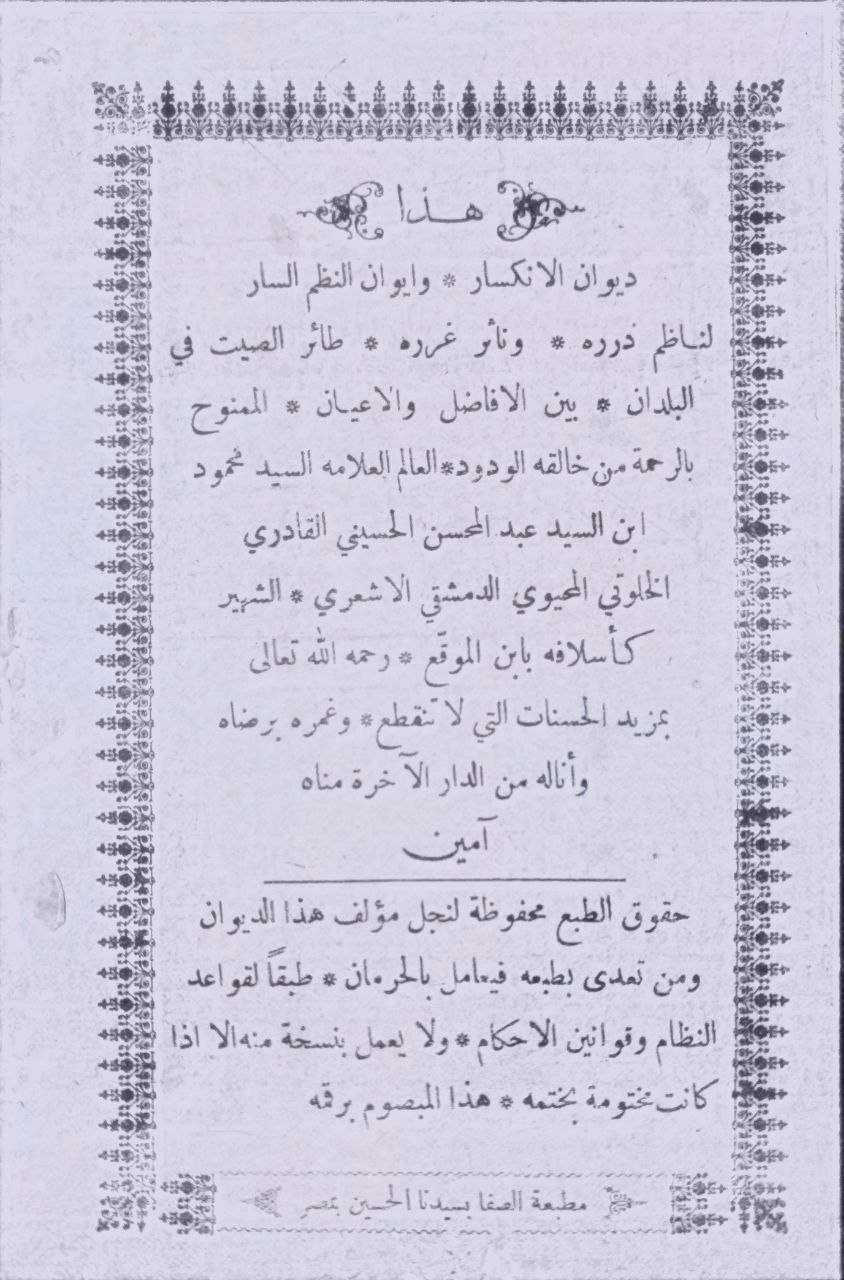 هذا
ديوان الانكسار * وايوان النظم السار
لناظم درره * وناثر غرره * طائر الصيت في
البلدان * بين الافاضل والاعيان * الممنوح
بالرحمة من خالقه الودود * العالم العلامه السيد محمود
ابن السيد عبد المحسن الحسيني القادري
الخلوتي المحيوي الدمشقي الاشعري * الشهير
كأسلافه بابن الموقّع * رحمه الله تعالى
بمزيد الحسنات التي لا تنقطع * وغمره برضاه
وأناله من الدار الآخرة مناه
آمين
حقوق الطبع محفوظة لنجل مؤلف هذا الديوان
ومن تعدى بطبعه فيعامل بالحرمان * طبقاً لقواعد
النظام وقوانين الاحكام * ولا يعمل بنسخة منه الا اذا
كانت مختومة بختمه * هذا المبصوم برقمه
مطبعة الصفا بسيدنا الحسين بمصر